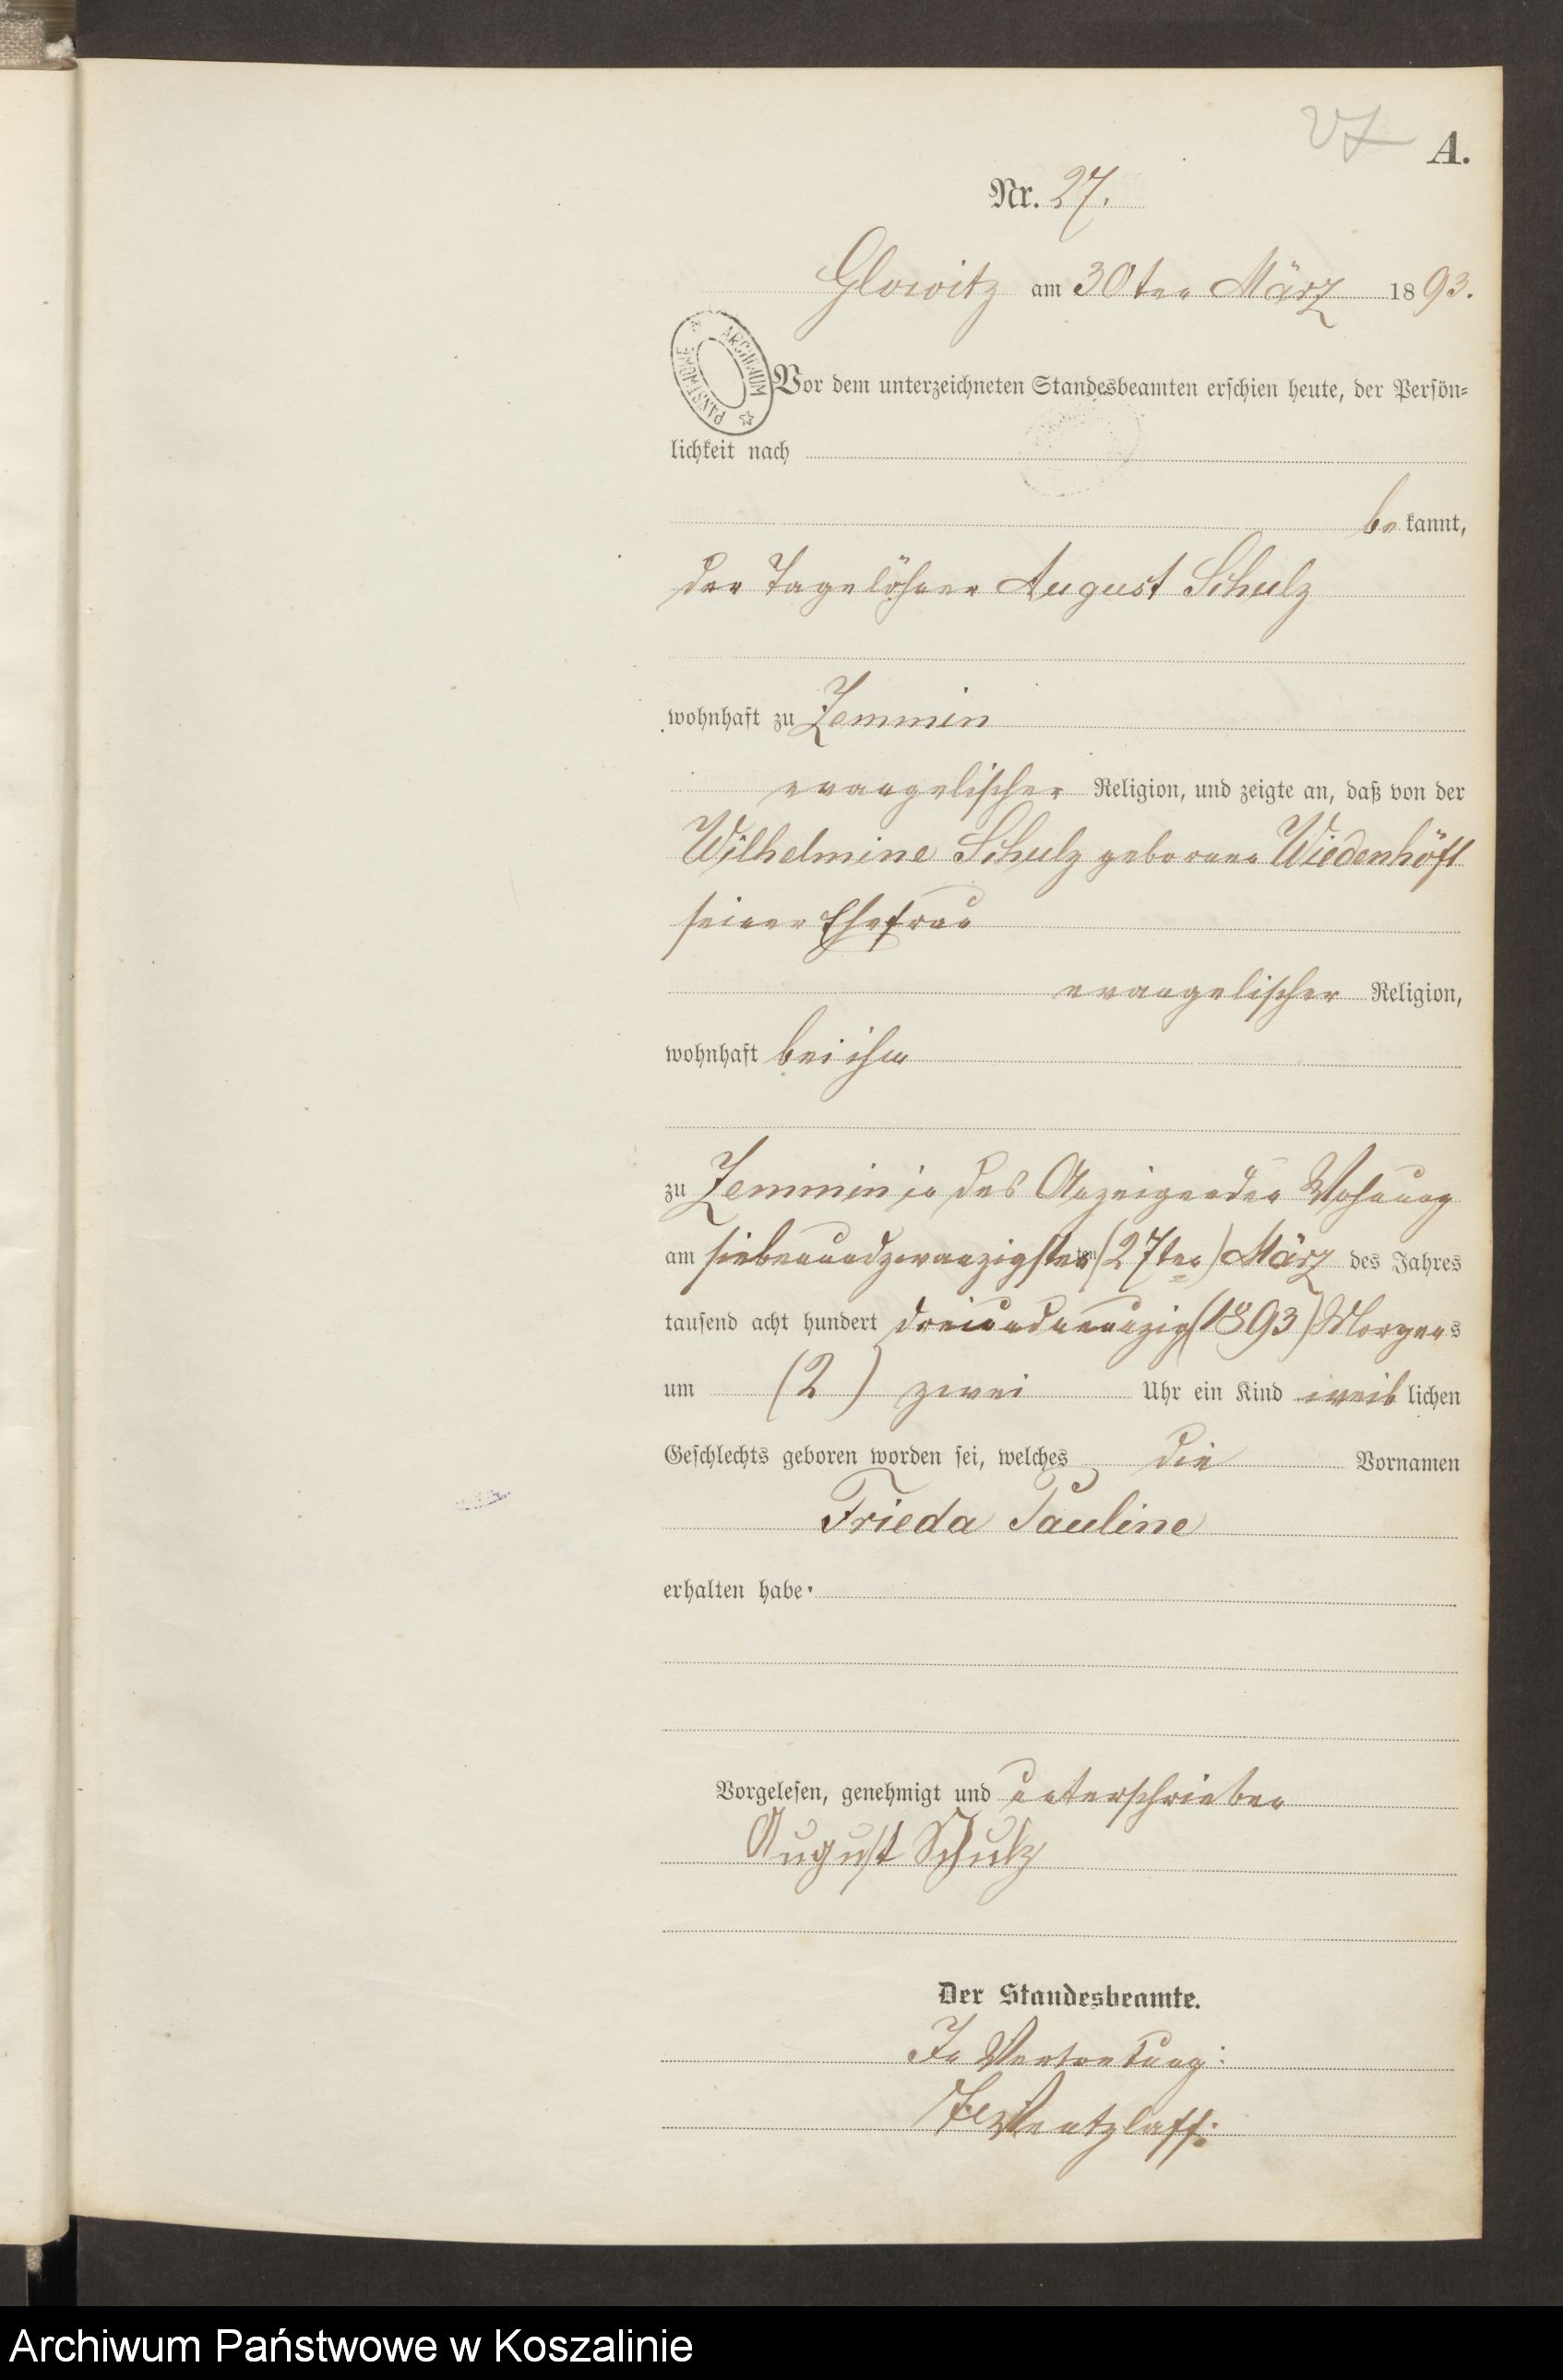 27
A.
Nr. 27.
Glowitz am 30ten März 1893.
ARCHIWUM PAŃSTWOWE
Vor dem unterzeichneten Standesbeamten erschien heute, der Persön-
lichkeit nach
be kannt,
der Tagelöhner August Schulz
wohnhaft zu Zemmin
evangelischer Religion, und zeigte an, daß von der
Wilhelmine Schulz geborene Wiedenhöft
seiner Ehefrau
evangelischer Religion,
wohnhaft bei ihm
zu Zemmin in des Anzeigenden Wohnung
am siebenundzwanzigsten (27ten) März des Jahres
tausend acht hundert dreiundneunzig (1893) Morgens
um (2) zwei Uhr ein Kind weib lichen
Geschlechts geboren worden sei, welches die Vornamen
Frieda Pauline
erhalten habe.
Vorgelesen, genehmigt und unterschrieben
August Schulz
Der Standesbeamte.
In Vertretung:
Wentzlaff.
Archiwum Państwowe w Koszalinie